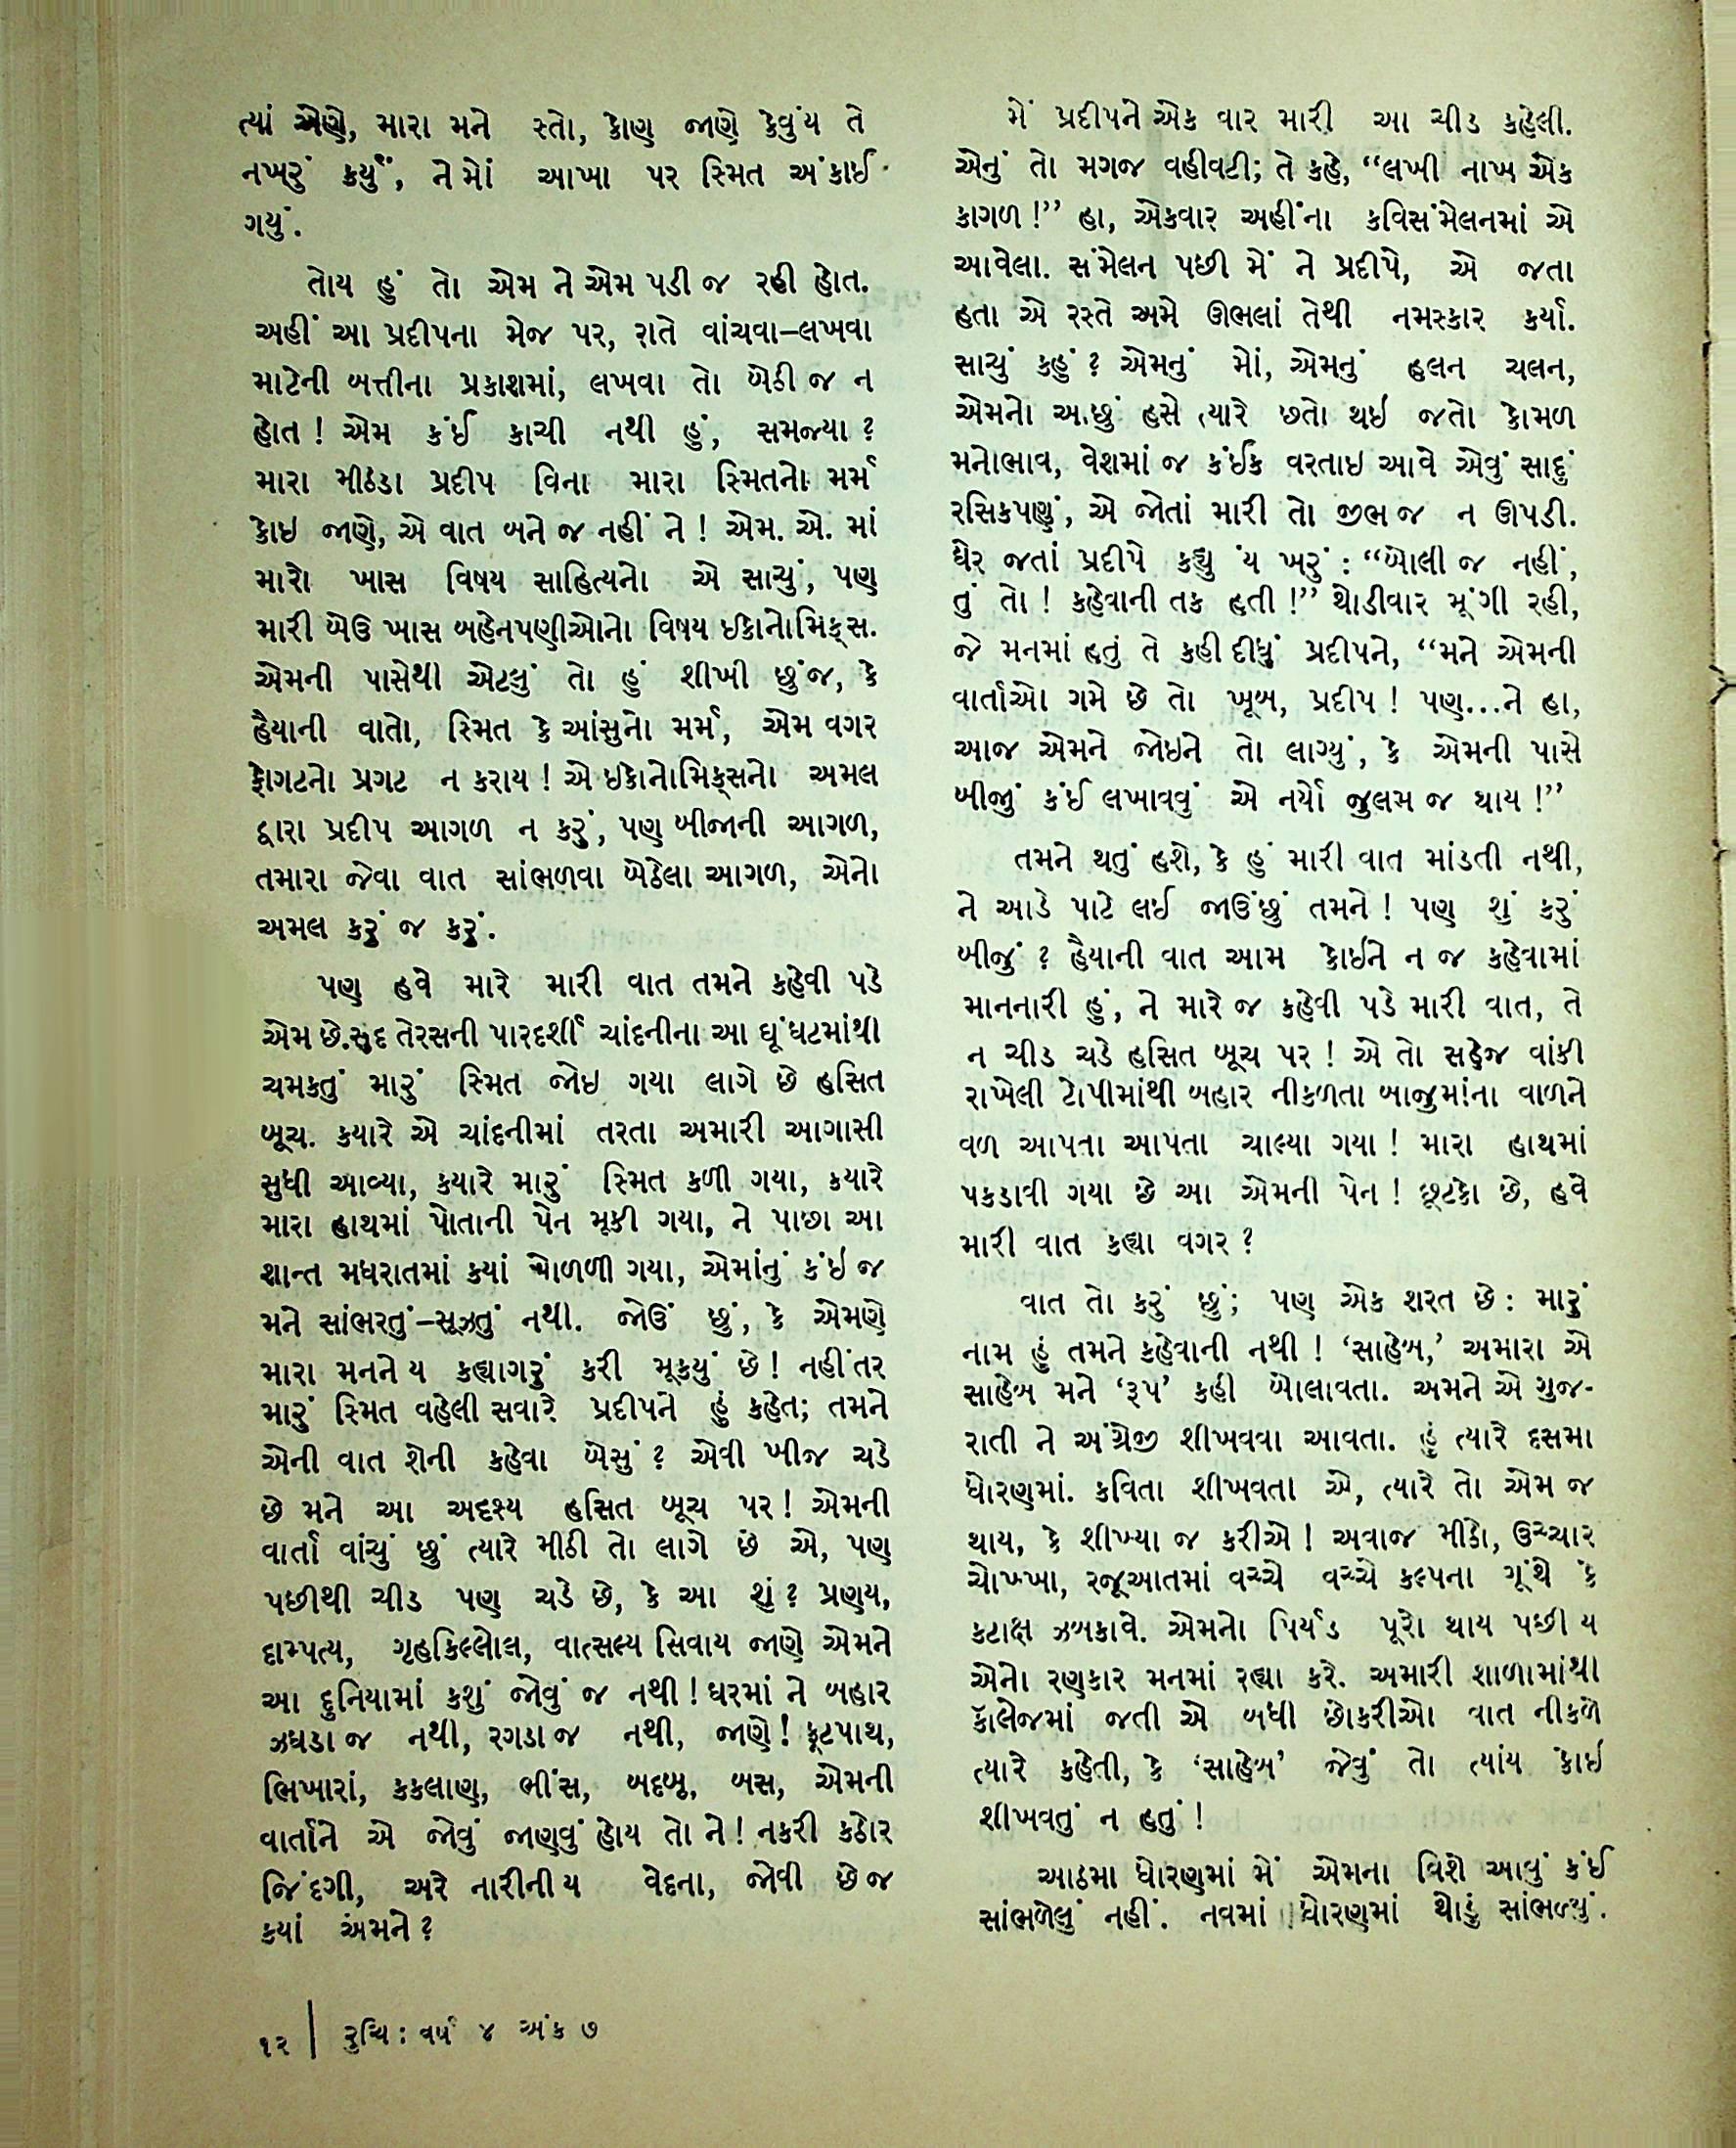 ત્યાં એણે, મારા મને રસ્તો, કોણ જાણે કેવુંય તે
નખરું કર્યું, ને મોં આખા પર સ્મિત અંકાઈ
ગયું.
તોય હું તો એમ ને એમ પડી જ રહી હોત.
અહીં આ પ્રદીપના મેજ પર, રાતે વાંચવા–લખવા
માટેની બત્તીના પ્રકાશમાં, લખવા તો બેઠી જ ન
હોત ! એમ કંઈ કાચી નથી હું, સમજ્યા ?
મારા મીઠડા પ્રદીપ વિના મારા સ્મિતનો મર્મ
કોઇ જાણે, એ વાત બને જ નહીં ને ! એમ. એ. માં
મારો ખાસ વિષય સાહિત્યનો એ સાચું, પણ
મારી બેઉ ખાસ બહેનપણીઓનો વિષય ઈકોનોમિક્સ.
એમની પાસેથી એટલું તો હું શીખી છુંજ, કે
હૈયાની વાતો, સ્મિત કે આંસુનો મર્મ, એમ વગર
ફોગટનો પ્રગટ ન કરાય ! એ ઈકોનોમિક્સનો અમલ
દ્વારા પ્રદીપ આગળ ન કરું, પણ બીજાની આગળ,
તમારા જેવા વાત સાંભળવા બેઠેલા આગળ, એનો
અમલ કરું જ કરું.
પણ હવે મારે મારી વાત તમને કહેવી પડે
એમ છે.સુદ તેરસની પારદર્શી ચાંદનીના આ ઘૂંઘટમાંથી
ચમકતું મારું સ્મિત જોઇ ગયા લાગે છે હસિત
બૂચ. કયારે એ ચાંદનીમાં તરતા અમારી આગાસી
સુધી આવ્યા, કયારે મારું સ્મિત કળી ગયા, કયારે
મારા હાથમાં પોતાની પેન મૂકી ગયા, ને પાછા આ
શાન્ત મધરાતમાં કયાં ઓળળી ગયા, એમાંનું કંઇ જ
મને સાંભરતું–સૂઝતું નથી. જોઉં છું, કે એમણે
મારા મનને ય કહ્યાગરું કરી મૂકયું છે ! નહીંતર
મારું સ્મિત વહેલી સવારે પ્રદીપને હું કહેત; તમને
એની વાત શેની કહેવા બેસું ? એવી ખીજ ચડે
છે મને આ અદૃશ્ય હસિત બૂચ પર ! એમની
વાર્તા વાંચું છું ત્યારે મીઠી તો લાગે છે એ, પણ
પછીથી ચીડ પણ ચડે છે, કે આ શું ? પ્રણય,
દામ્પત્ય, ગૃહકિલ્લોલ, વાત્સલ્ય સિવાય જાણે એમને
આ દુનિયામાં કશું જોવું જ નથી ! ઘરમાં ને બહાર
ઝઘડા જ નથી, રગડા જ નથી, જાણે ! ફૂટપાથ,
ભિખારાં, કકલાણ, ભીંસ, બદબૂ, બસ, એમની
વાર્તાને એ જોવું જાણવું હોય તો ને ! નકરી કઠોર
જિંદગી, અરે નારીની ય વેદના, જોવી છે જ
કયાં એમને ?
૧૨ | રુચિ : વર્ષ ૪ અંક ૭
મેં પ્રદીપને એક વાર મારી આ ચીડ કહેલી.
એનું તો મગજ વહીવટી; તે કહે, “લખી નાખ એક
કાગળ !” હા, એકવાર અહીંના કવિસંમેલનમાં એ
આવેલા. સંમેલન પછી મેં ને પ્રદીપે, એ જતા
હતા એ રસ્તે અમે ઊભલાં તેથી નમસ્કાર કર્યા.
સાચું કહું ? એમનું મોં, એમનું હલન ચલન,
એમનો આછું હસે ત્યારે છતો થઇ જતો કોમળ
મનોભાવ, વેશમાં જ કંઈક વરતાઇ આવે એવું સાદું
રસિકપણું, એ જોતાં મારી તો જીભ જ ન ઊપડી.
ઘેર જતાં પ્રદીપે કહ્યું ય ખરું : “બોલી જ નહીં,
તું તો ! કહેવાની તક હતી !” થોડીવાર મૂંગી રહી,
જે મનમાં હતું તે કહી દીધું પ્રદીપને, “મને એમની
વાર્તાઓ ગમે છે તો ખૂબ, પ્રદીપ ! પણ...ને હા,
આજ એમને જોઇને તો લાગ્યું, કે એમની પાસે
બીજું કંઈ લખાવવું એ નર્યો જુલમ જ થાય !”
તમને થતું હશે, કે હું મારી વાત માંડતી નથી,
ને આડે પાટે લઈ જાઉંછું તમને ! પણ શું કરું
બીજું ? હૈયાની વાત આમ કોઈને ન જ કહેવામાં
માનનારી હું, ને મારે જ કહેવી પડે મારી વાત, તે
ન ચીડ ચડે હસિત બૂચ પર ! એ તો સહેજ વાંકી
રાખેલી ટોપીમાંથી બહાર નીકળતા બાજુમાંના વાળને
વળ આપતા આપતા ચાલ્યા ગયા ! મારા હાથમાં
પકડાવી ગયા છે આ એમની પેન ! છૂટકો છે, હવે
મારી વાત કહ્યા વગર ?
વાત તો કરું છું; પણ એક શરત છે : મારું
નામ હું તમને કહેવાની નથી ! ‘સાહેબ,’ અમારા એ
સાહેબ મને ‘રૂપ’ કહી બોલાવતા. અમને એ ગુજ-
રાતી ને અંગ્રેજી શીખવવા આવતા. હું ત્યારે દસમા
ધોરણમાં. કવિતા શીખવતા એ, ત્યારે તો એમ જ
થાય, કે શીખ્યા જ કરીએ ! અવાજ મીઠો, ઉચ્ચાર
ચોખ્ખા, રજૂઆતમાં વચ્ચે વચ્ચે કલ્પના ગૂંથે કે
કટાક્ષ ઝબકાવે. એમનો પિર્યડ પૂરો થાય પછી ય
એનો રણકાર મનમાં રહ્યા કરે. અમારી શાળામાંથી
કૉલેજમાં જતી એ બધી છોકરીઓ વાત નીકળે
ત્યારે કહેતી, કે ‘સાહેબ’ જેવું તો ત્યાંય કોઇ
શીખવતું ન હતું !
આઠમા ધોરણમાં મેં એમના વિશે આવું કંઈ
સાંભળેલું નહીં. નવમાં ધોરણમાં થોડું સાંભળ્યું.